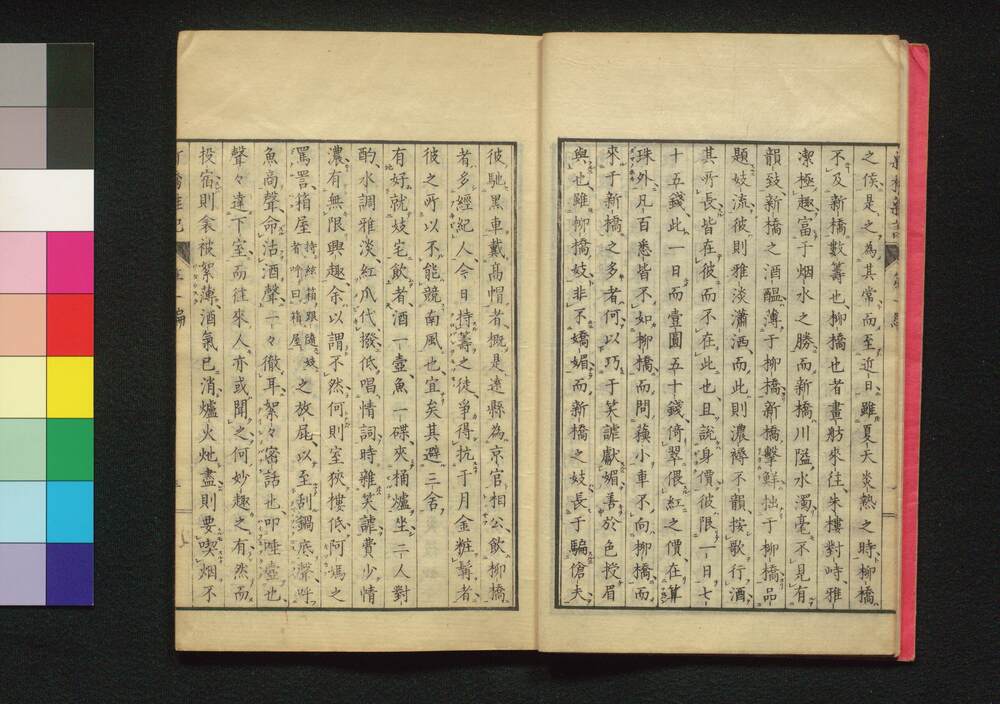 之候是之為其常而至近日雖夏天炎熱之時柳橋
不及新橋數籌也柳橋也者畫舫來往朱樓對峙雅
潔極趣富于烟水之勝而新橋川隘水濁毫不見有
韻致新橋之酒醞薄于柳橋新橋擊鮮拙于柳橋品
題妓流彼則雅淡瀟洒而此則濃褥不韻按歌行酒
其所長皆在彼而不在此也且說身價彼限一日七
十五錢此一日而壹圓五十錢倚翠偎紅之價在算
珠外凡百悉皆不如柳橋而問藝小車不向柳橋而
來于新橋之多者何以巧于笑謔獻媚善於色授眉
與也雖柳橋妓非不嬌媚而新橋之妓長于騙傖夫
彼馳黑車戴高帽者概是遠縣為京官相公飲柳橋
者多經紀人今日持籌之徒爭得抗于月金粧髯者
彼之所以不能競南風也宜矣其避三舍
有好就妓宅飲者酒一壺魚一碟夾桶爐坐二人對
酌水調雅淡紅爪代撥低唱情詞時雜笑謔費少情
濃有無限興趣余以謂不然何則室狹樓低阿媽之
罵詈箱屋持綜箱跟隨妓者呼曰箱屋之放屁以至刮鍋底聲呼
魚高聲命沽酒聲一々徹耳絮々密話也叩唾壺也
聲々達下室而往來人亦或聞之何妙趣之有然而
投宿則衾被絮薄酒氣已消爐火灺盡則要喫烟不